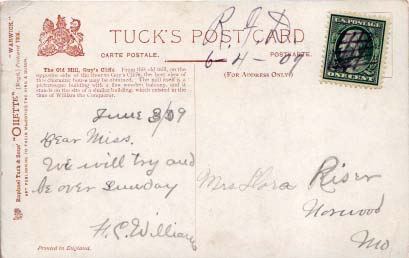 TUCK'S POST CARD
CARTE POSTALE.
POSTKARTE.
(FOR ADDRESS ONLY)
R.F.D
6-4-09
U.S. POSTAGE
ONE CENT
The Old Mill, Guy's Cliffe. From this old mill, on the
opposite side of the river to Guy's Cliffe, the best view of
this charming house may be obtained. The mill itself is a
picturesque building with a fine wooden balcony, and it
stands on the site of a similar building, which existed in the
time of William the Conqueror.
"WARWICK"
Raphael Tuck & Sons' "OILETTE"
June 3/09
Dear Miss.
We will try and
be over Sunday
H.C. Williams
Mrs Flora Riser
Norwood
Mo
Printed in England.